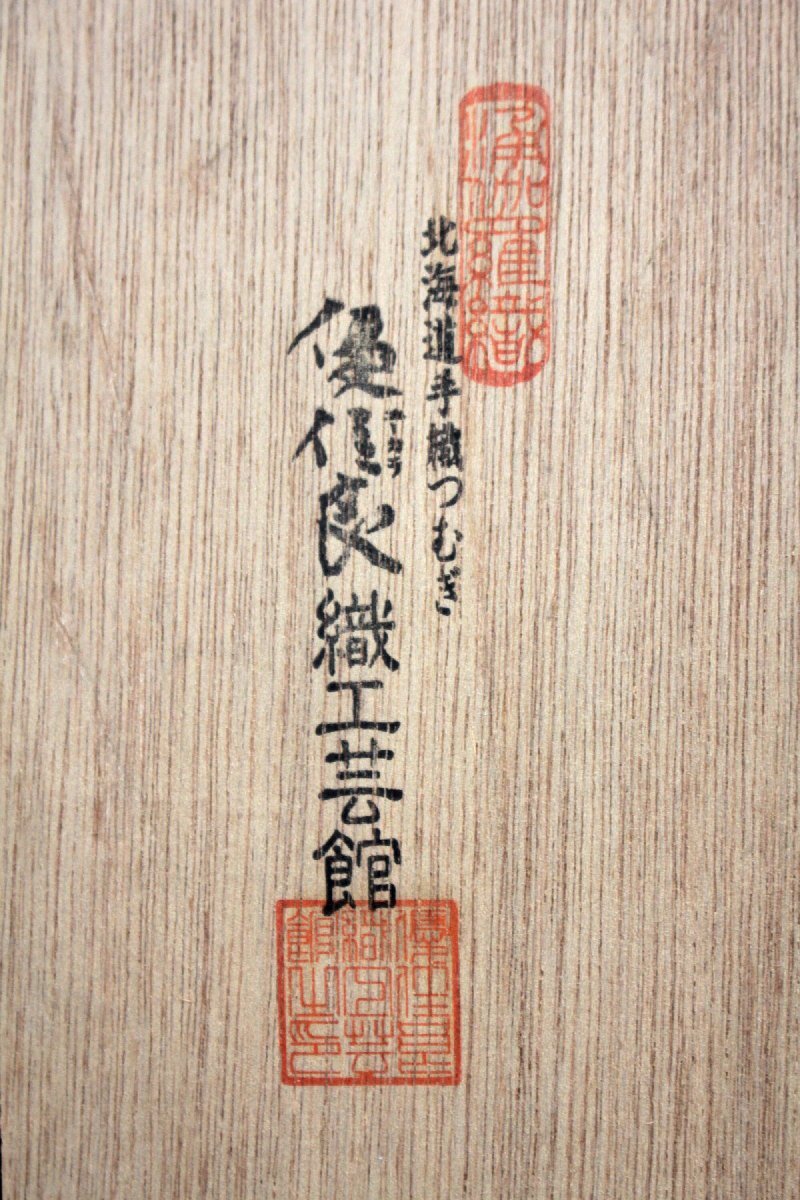 北海道手織つむぎ
優佳良織工芸館
ユーカラ
優佳良織工芸館之印